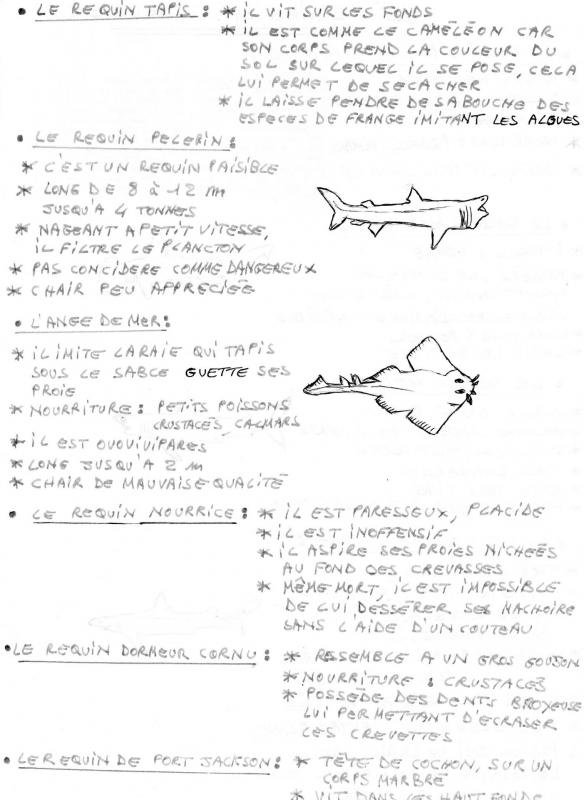 • LE REQUIN TAPIS : * IL VIT SUR LES FONDS
* IL EST COMME LE CAMÉLÉON CAR
SON CORPS PREND LA COULEUR DU
SOL SUR LEQUEL IL SE POSE, CELA
LUI PERMET DE SECACHER
* IL LAISSE PENDRE DE SA BOUCHE DES
ESPECES DE FRANGE IMITANT LES ALGUES
• LE REQUIN PELERIN :
* C'EST UN REQUIN PAISIBLE
* LONG DE 8 à 12 m
JUSQU'A 4 TONNES
* NAGEANT A PETIT VITESSE,
IL FILTRE LE PLANCTON
* PAS CONCIDERE COMME DANGEREUX
* CHAIR PEU APPRECIÉE
• L'ANGE DE MER :
* IL IMITE LA RAIE QUI TAPIS
SOUS LE SABLE GUETTE SES
PROIE
* NOURRITURE : PETITS POISSONS
CRUSTACÉS, CALMARS
* IL EST OVOVIVIPARES
* LONG JUSQU'A 2 m
* CHAIR DE MAUVAISE QUALITÉ
• LE REQUIN NOURRICE : * IL EST PARESSEUX, PLACIDE
* IL EST INOFFENSIF
* IL ASPIRE SES PROIES NICHEÉS
AU FOND DES CREVASSES
* MÊME MORT, IL EST IMPOSSIBLE
DE LUI DESSÉRER SES MACHOIRE
SANS L'AIDE D'UN COUTEAU
• LE REQUIN DORMEUR CORNU : * RESSEMBLE A UN GROS GOUJON
* NOURRITURE : CRUSTACÉS
* POSSÈDE DES DENTS BROYEUSE
LUI PERMETTANT D'ECRASER
LES CREVETTES
• LE REQUIN DE PORT JACKSON : * TÊTE DE COCHON, SUR UN
CORPS MARBRÉ
* VIT DANS LES HAUT FONDS